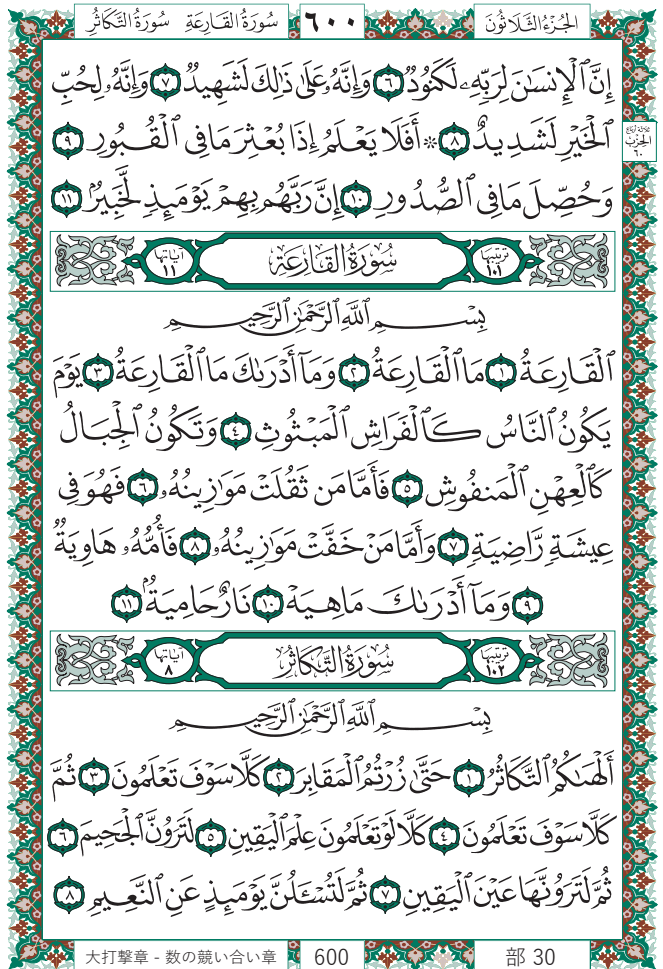 سُورَةُ القَارِعَةِ سُورَةُ التَّكَاثُرِ ٦٠٠ الجُزْءُ الثَّلَاثُونَ
إِنَّ ٱلْإِنسَٰنَ لِرَبِّهِۦ لَكَنُودٌ ٦ وَإِنَّهُۥ عَلَىٰ ذَٰلِكَ لَشَهِيدٌ ٧ وَإِنَّهُۥ لِحُبِّ
ٱلْخَيْرِ لَشَدِيدٌ ٨ ۞ أَفَلَا يَعْلَمُ إِذَا بُعْثِرَ مَا فِى ٱلْقُبُورِ ٩
ثلاثة أرباع
الحِزْب
٦٠
وَحُصِّلَ مَا فِى ٱلصُّدُورِ ١٠ إِنَّ رَبَّهُم بِهِمْ يَوْمَئِذٍ لَّخَبِيرٌۢ ١١
ترتيبها ١٠١ سُورَةُ القَارِعَةِ آياتها ١١
بِسْمِ ٱللَّهِ ٱلرَّحْمَٰنِ ٱلرَّحِيمِ
ٱلْقَارِعَةُ ١ مَا ٱلْقَارِعَةُ ٢ وَمَآ أَدْرَىٰكَ مَا ٱلْقَارِعَةُ ٣ يَوْمَ
يَكُونُ ٱلنَّاسُ كَٱلْفَرَاشِ ٱلْمَبْثُوثِ ٤ وَتَكُونُ ٱلْجِبَالُ
كَٱلْعِهْنِ ٱلْمَنفُوشِ ٥ فَأَمَّا مَن ثَقُلَتْ مَوَٰزِينُهُۥ ٦ فَهُوَ فِى
عِيشَةٍ رَّاضِيَةٍ ٧ وَأَمَّا مَنْ خَفَّتْ مَوَٰزِينُهُۥ ٨ فَأُمُّهُۥ هَاوِيَةٌ
٩ وَمَآ أَدْرَىٰكَ مَا هِيَهْ ١٠ نَارٌ حَامِيَةٌۢ ١١
ترتيبها ١٠٢ سُورَةُ التَّكَاثُرِ آياتها ٨
بِسْمِ ٱللَّهِ ٱلرَّحْمَٰنِ ٱلرَّحِيمِ
أَلْهَىٰكُمُ ٱلتَّكَاثُرُ ١ حَتَّىٰ زُرْتُمُ ٱلْمَقَابِرَ ٢ كَلَّا سَوْفَ تَعْلَمُونَ ٣ ثُمَّ
كَلَّا سَوْفَ تَعْلَمُونَ ٤ كَلَّا لَوْ تَعْلَمُونَ عِلْمَ ٱلْيَقِينِ ٥ لَتَرَوُنَّ ٱلْجَحِيمَ ٦
ثُمَّ لَتَرَوُنَّهَا عَيْنَ ٱلْيَقِينِ ٧ ثُمَّ لَتُسْـَٔلُنَّ يَوْمَئِذٍ عَنِ ٱلنَّعِيمِ ٨
大打撃章 - 数の競い合い章 600 部 30